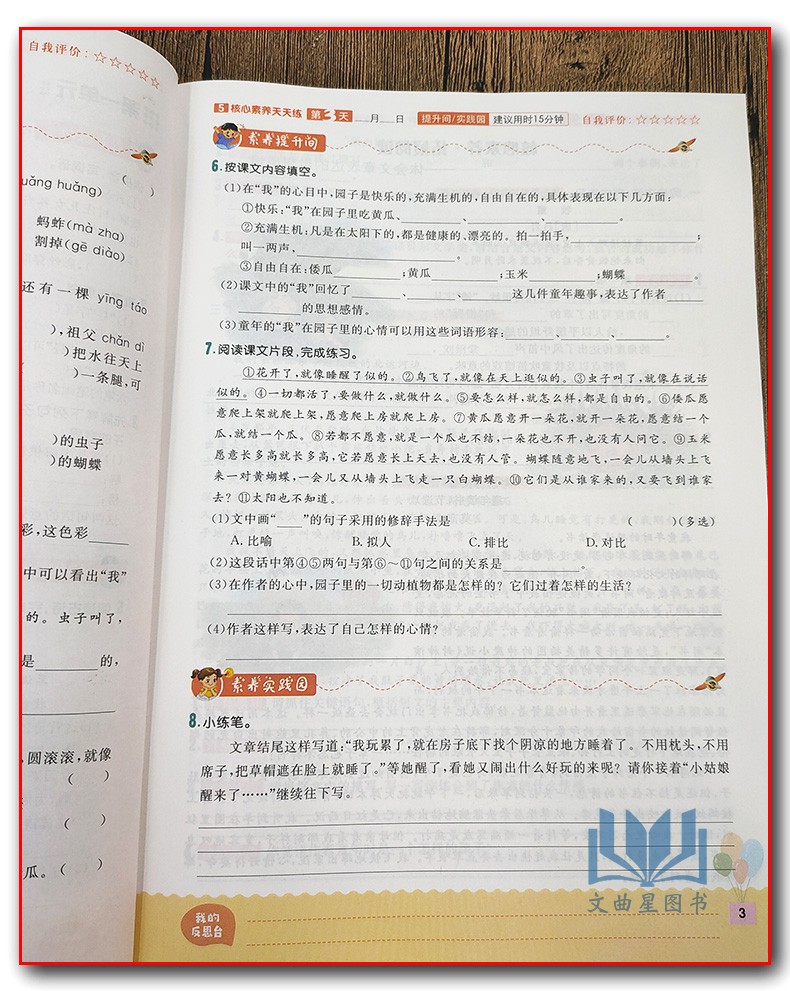 自我评价：☆☆☆☆☆
(    )
uǎng huǎng)
蚂蚱(mà zha)
割掉(gē diào)
还有一棵 yīng táo
)，祖父 chǎn dì
)把水往天上
)一条腿，可
)的虫子
)的蝴蝶
彩，这色彩______
中可以看出“我”
的。虫子叫了，
是______的，
圆滚滚，就像
(    )
(    )
瓜。(    )
5 核心素养天天练 第3天 ___月___日 提升间/实践园 建议用时15分钟 自我评价：☆☆☆☆☆
素养提升间
6.按课文内容填空。
(1)在“我”的心目中，园子是快乐的，充满生机的，自由自在的，具体表现在以下几方面：
①快乐：“我”在园子里吃黄瓜、________、________、________。
②充满生机：凡是在太阳下的，都是健康的、漂亮的。拍一拍手，________________；
叫一两声，________________。
③自由自在：倭瓜________；黄瓜________；玉米________；蝴蝶________。
(2)课文中的“我”回忆了______、______、______这几件童年趣事，表达了作者
________的思想感情。
(3)童年的“我”在园子里的心情可以用这些词语形容：______、______、______。
7.阅读课文片段，完成练习。
①花开了，就像睡醒了似的。②鸟飞了，就像在天上逛似的。③虫子叫了，就像在说话
似的。④一切都活了，要做什么，就做什么。⑤要怎么样，就怎么样，都是自由的。⑥倭瓜愿
意爬上架就爬上架，愿意爬上房就爬上房。⑦黄瓜愿意开一朵花，就开一朵花，愿意结一个
瓜，就结一个瓜。⑧若都不愿意，就是一个瓜也不结，一朵花也不开，也没有人问它。⑨玉米
愿意长多高就长多高，它若愿意长上天去，也没有人管。蝴蝶随意地飞，一会儿从墙头上飞
来一对黄蝴蝶，一会儿又从墙头上飞走一只白蝴蝶。⑩它们是从谁家来的，又要飞到谁家
去？⑪太阳也不知道。
(1)文中画“____”的句子采用的修辞手法是 (    )(多选)
A. 比喻 B. 拟人 C. 排比 D. 对比
(2)这段话中第④⑤两句与第⑥～⑪句之间的关系是__________。
(3)在作者的心中，园子里的一切动植物都是怎样的？它们过着怎样的生活？
(4)作者这样写，表达了自己怎样的心情？
素养实践园
8.小练笔。
文章结尾这样写道：“我玩累了，就在房子底下找个阴凉的地方睡着了。不用枕头，不用
席子，把草帽遮在脸上就睡了。”等她醒了，看她又闹出什么好玩的来呢？请你接着“小姑娘
醒来了……”继续往下写。
文曲星图书
我的
反思台
3